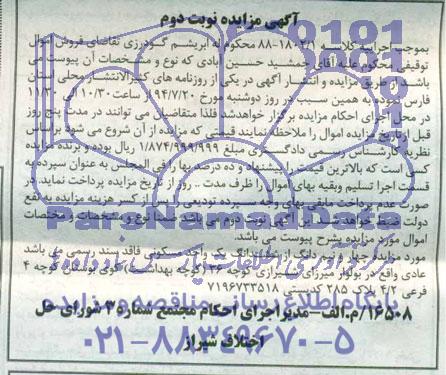 آگهی مزایده نوبت دوم
بموجب اجراییه کلاسه ۸۸-۱۸۰۲/۱ محکوم له ابریشم گودرزی تقاضای فروش اموال
توقیفی محکوم علیه آقای جمشید حسین آبادی که نوع و مشخصات آن پیوست می
باشد از طریق مزایده و انتشار آگهی در یکی از روزنامه های کثیرالانتشار محلی استان
فارس نموده به همین سبب در روز دوشنبه مورخ ۹۴/۷/۲۰ ساعت ۱۰/۳۰ الی ۱۱/۳۰
در محل اجرای احکام مزایده برگزار خواهدشد فلذا متقاضیان می توانند در مدت پنج روز
قبل از تاریخ مزایده اموال را ملاحظه نمایند قیمتی که مزایده از آن شروع می شود براساس
نظریه کارشناس رسمی دادگستری مبلغ ۱/۸۷۴/۹۹۹/۹۹۹ ریال بوده و برنده مزایده
کسی است که بالاترین قیمت را پیشنهاد و ده درصد بها را فی المجلس به عنوان سپرده به
قسمت اجرا تسلیم وبقیه بهای اموال را ظرف مدت .. روز از تاریخ مزایده پرداخت نماید. در
صورت عدم پرداخت مابقی بهای وجه سپرده تودیعی پس از کسر هزینه مزایده به نفع
دولت ضبط خواهد شد این آگهی نوبت دوم می باشد ضمنا نوع و مشخصات و مختصات
اموال مورد مزایده بشرح پیوست می باشد.
مورد مزایده چهار و نیم دانگ از ششدانگ یک واحد مسکونی فاقد سند رسمی می باشد
عادی واقع در بولوار میرزای شیرازی کوچه ۲۶ (کوچه بهداشت) کوی بوستان کوچه ۴
فرعی ۴/۲ پلاک ۲۸۵ کدپستی ۷۱۹۶۷۳۳۵۱۸
۱۶۵۰۸/م.الف-مدیر اجرای احکام مجتمع شماره ۳ شورای حل
اختلاف شیراز
ParsNamadData
پایگاه اطلاع رسانی مناقصه و مزایده
۰۲۱-۸۸۳۴۹۶۷۰-۵